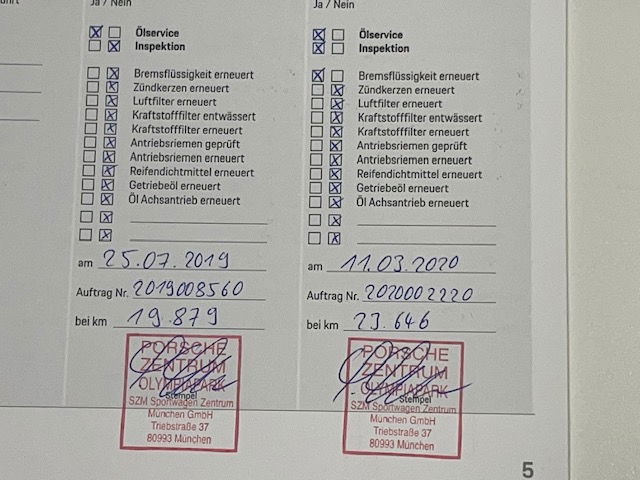 Ja / Nein
Ölservice
Inspektion
Bremsflüssigkeit erneuert
Zündkerzen erneuert
Luftfilter erneuert
Kraftstofffilter entwässert
Kraftstofffilter erneuert
Antriebsriemen geprüft
Antriebsriemen erneuert
Reifendichtmittel erneuert
Getriebeöl erneuert
Öl Achsantrieb erneuert
am 25.07.2019
Auftrag Nr. 2019008560
bei km 19.879
PORSCHE
ZENTRUM
OLYMPIAPARK
Stempel
SZM Sportwagen Zentrum
München GmbH
Triebstraße 37
80993 München
Ja / Nein
Ölservice
Inspektion
Bremsflüssigkeit erneuert
Zündkerzen erneuert
Luftfilter erneuert
Kraftstofffilter entwässert
Kraftstofffilter erneuert
Antriebsriemen geprüft
Antriebsriemen erneuert
Reifendichtmittel erneuert
Getriebeöl erneuert
Öl Achsantrieb erneuert
am 11.03.2020
Auftrag Nr. 2020002220
bei km 23.646
PORSCHE
ZENTRUM
OLYMPIAPARK
Stempel
SZM Sportwagen Zentrum
München GmbH
Triebstraße 37
80993 München
5